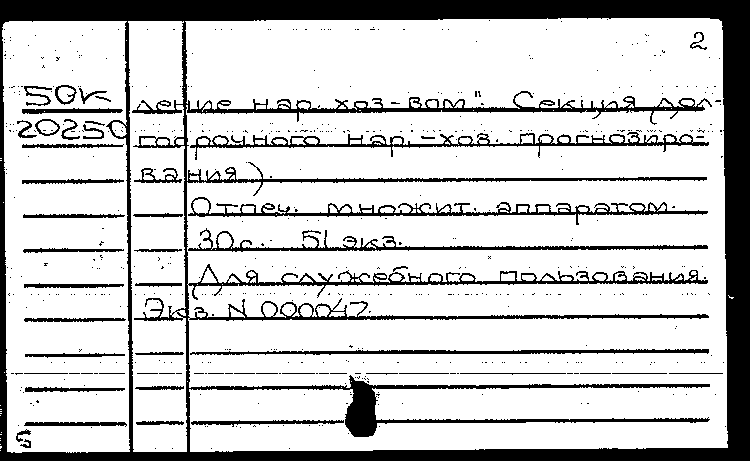 2
50К ление нар. хоз-вом". Секция дол-
20250 госрочного нар.-хоз. прогнозиро-
вания).
Отпеч. множит. аппаратом.
30с. 51 экз.
Для служебного пользования.
Экз. N 000047.
S